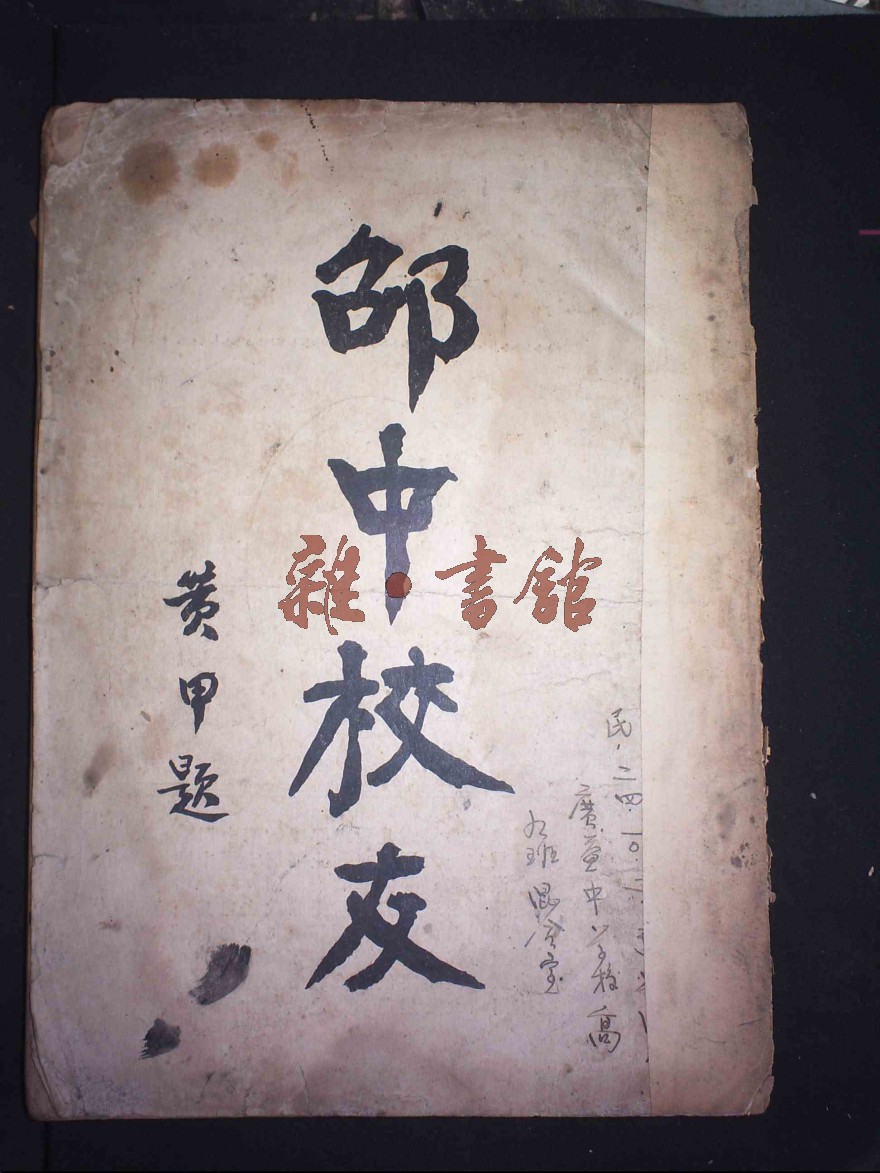 邵中校友
黄甲題
民·二四·一〇·二
廣益中学校高
九班
雜·書館